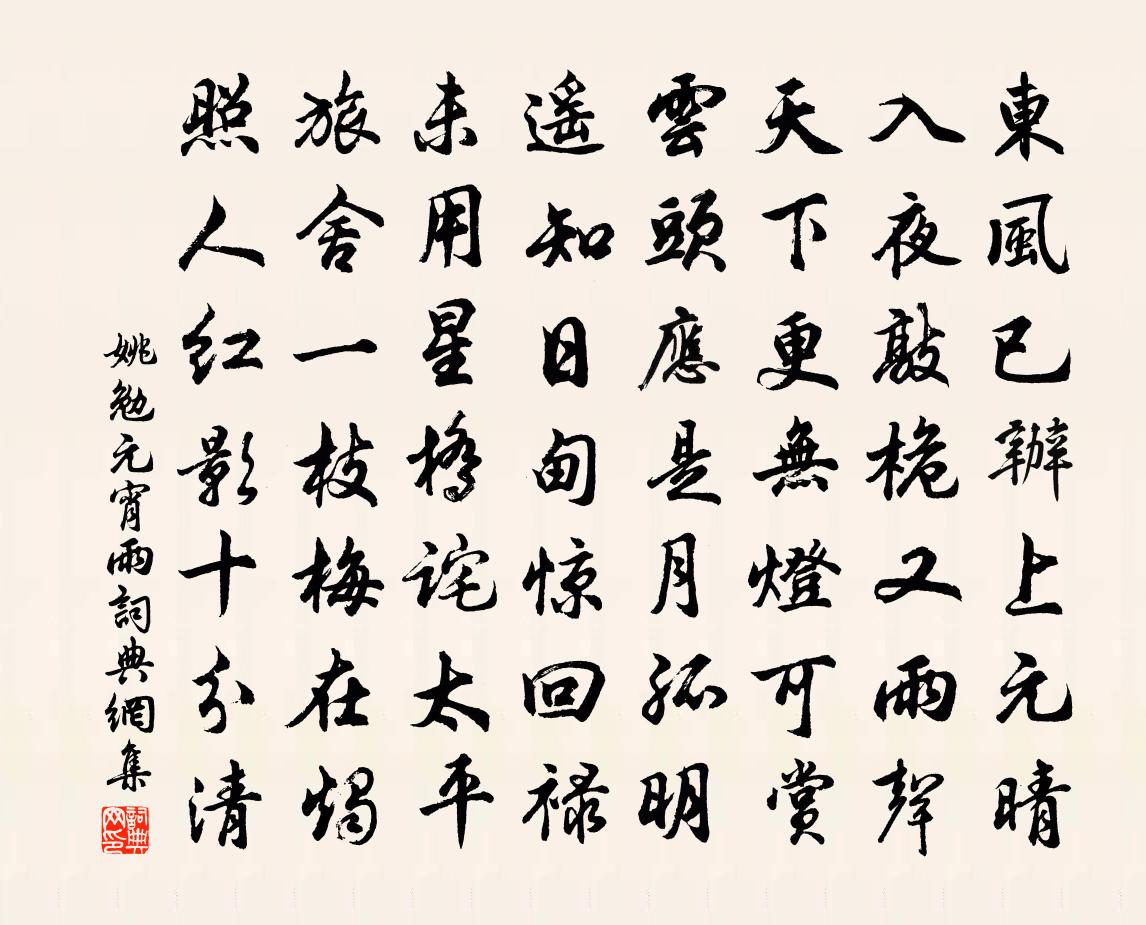 東風已辦上元晴
入夜敲桅又雨聲
天下更無燈可賞
雲頭應是月孤明
遥知日甸惊回禄
未用星橋詫太平
旅舍一枝梅在燭
照人红影十分清
姚勉元宵雨詞典網集
詞典网印